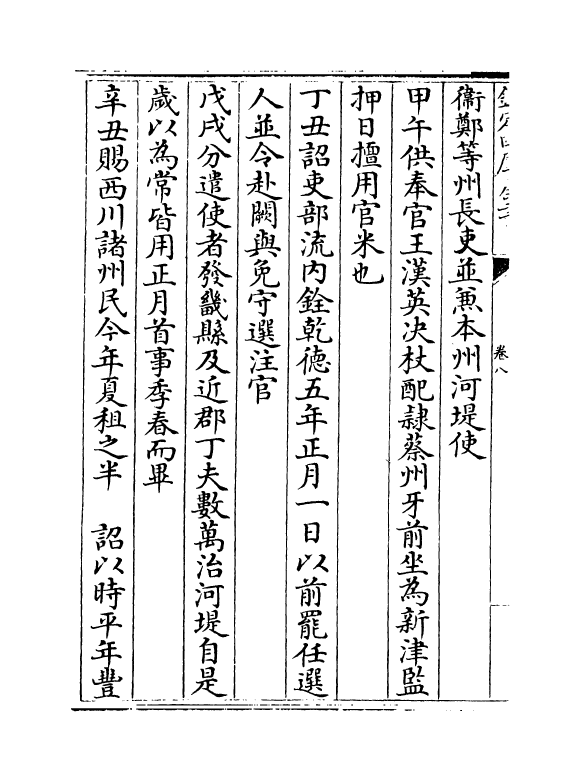 欽定四庫全書
卷八
衞鄭等州長吏並兼本州河堤使
甲午供奉官王漢英决杖配隷蔡州牙前坐為新津監
押日擅用官米也
丁丑詔吏部流内銓乾徳五年正月一日以前罷任選
人並令赴闕與免守選注官
戊戌分遣使者發畿縣及近郡丁夫數萬治河堤自是
歲以為常皆用正月首事季春而畢
辛丑賜西川諸州民今年夏租之半 詔以時平年豐